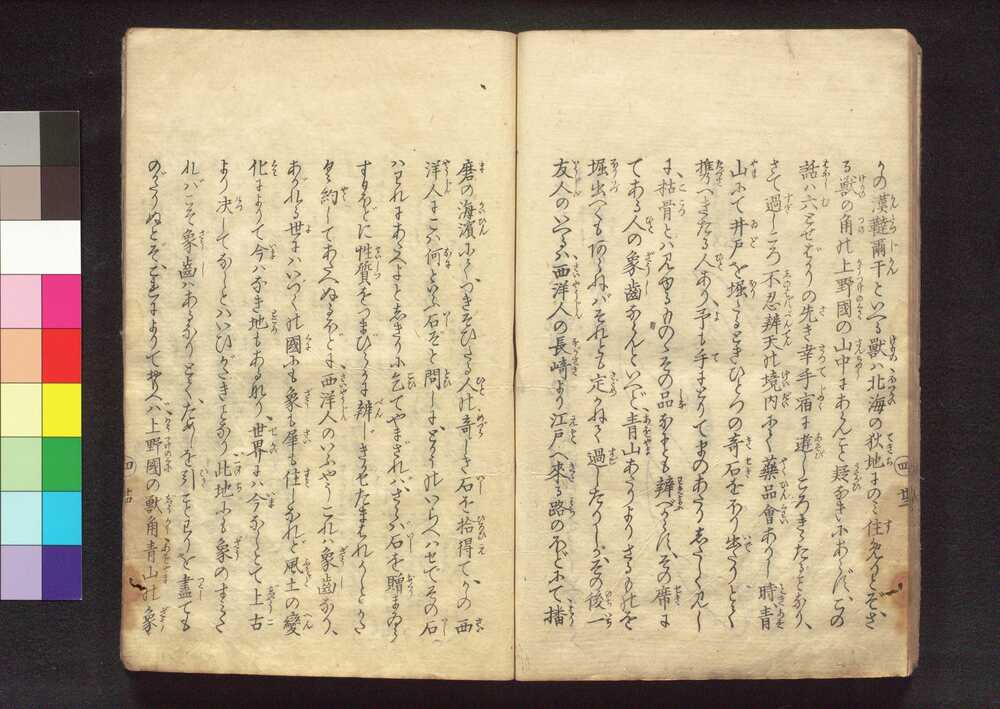 りの漢韃爾干といへる獣ハ北海の狄地にのミ住めりとぞ、さ
る獣の角の上野國の山中にあらんこと疑なきにあらず、この
話ハ六とせばかりの先き幸手宿に遊しころきゝたることなり、
さて過しころ不忍辨天の境内にて藥品會ありし時、青
山にて井戸を堀たるときひとつの奇石をほり出たりとて
携へきたる人あり、予も手にとりてまのあたりしたしく見し
に、枯骨とハ見ゆるものゝその品なとも辨べからず、その席に
てある人の象齒ならんといへど、青山あたりよりさるものを
堀出べくもあらねバそれとも定かねて過したりしが、その後一
友人のいへるハ西洋人の長崎より江戸へ來る路のほどにて、播
磨の海濱にて、つきそひたる人の奇しき石を拾得て、かの西
洋人にこハ何といふ石ぞと問しにこのいらへハせでその石
ハわれにあたへよとしきりに乞てやまざれバ、さらバ石を贈まゐら
すほどに性質をつまびらかに辨じきかせたまはれかしとかた
く約してあたへぬるほどに、西洋人のいふやうこれハ象齒なり、
あがれる世にハいづくの國にも象も犀も住しなれど風土の變
化によりて今ハなき地もある也、世界に今なしとて上古
より决してなしとハいひがたきことなり此地にも象のすみた
れバこそ象齒ハあるなりとて、ためしを引ことわりを盡ても
のがたりぬとぞ、これによりておもへハ上野國の獸角青山の象